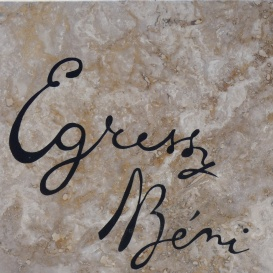 Egressy
Béni